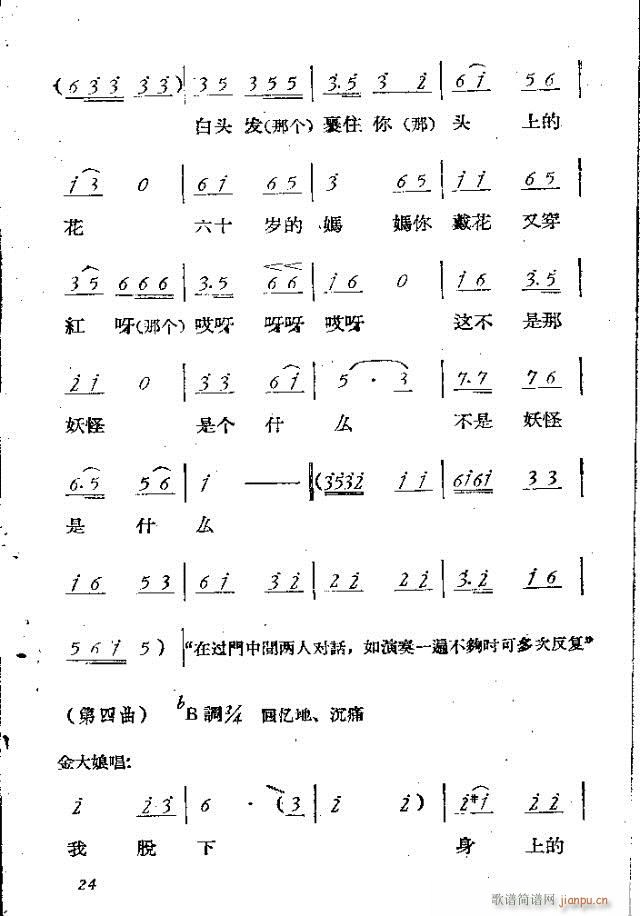 (6 3̇3̇ 3̇3̇) | 3 5 3 5 5 | 3·5 3 i | 6 i 5 6 |
白头发(那个)裹住你(那)头上的
i 3 0 | 6 i 6 5 | 3 6 5 | i i 6 5 |
花 六十岁的媽媽你戴花又穿
3 5 6 6 6 | 3·5 6 6 | i 6 0 | i 6 3·5 |
紅呀(那个)哎呀呀呀哎呀 这不是那
2 i 0 | 3 3 6 i | 5 · 3 | 7·7 7 6 |
妖怪 是个什么 不是妖怪
6·5 5 6 | i — (3532 i i | 6i6i 3 3 |
是什么
i 6 5 3 | 6 i 3 2 | 2 2 2 2 | 3·2 i 6 |
5 6 i 5 ) "在过門中間两人对話，如演奏一遍不夠时可多次反复"
(第四曲) ♭B調2/4 回忆地、沉痛
金大娘唱:
2 2 3 | 6 · (3 | 2 2 ) | 2 #i 2 2 |
我脫下 身上的
24
歌谱简谱网 jianpu.cn